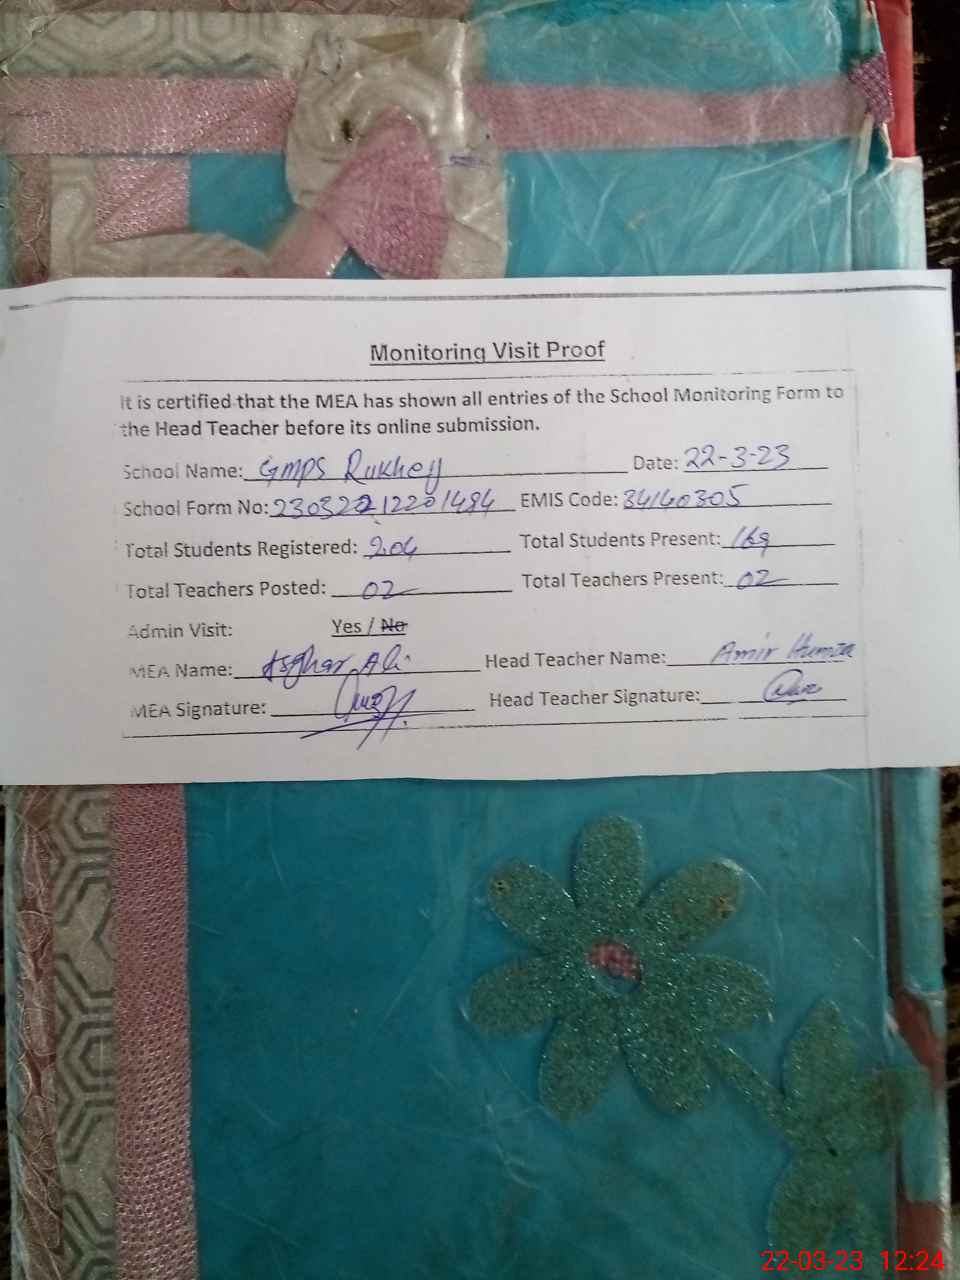 Monitoring Visit Proof
It is certified that the MEA has shown all entries of the School Monitoring Form to
the Head Teacher before its online submission.
School Name: GMPS Rukhey Date: 22-3-23
School Form No: 23032212201484 EMIS Code: 34140305
Total Students Registered: 204 Total Students Present: 169
Total Teachers Posted: 02 Total Teachers Present: 02
Admin Visit: Yes / No
MEA Name: Asghar Ali Head Teacher Name: Amir Humza
MEA Signature: Head Teacher Signature:
22-03-23 12:24